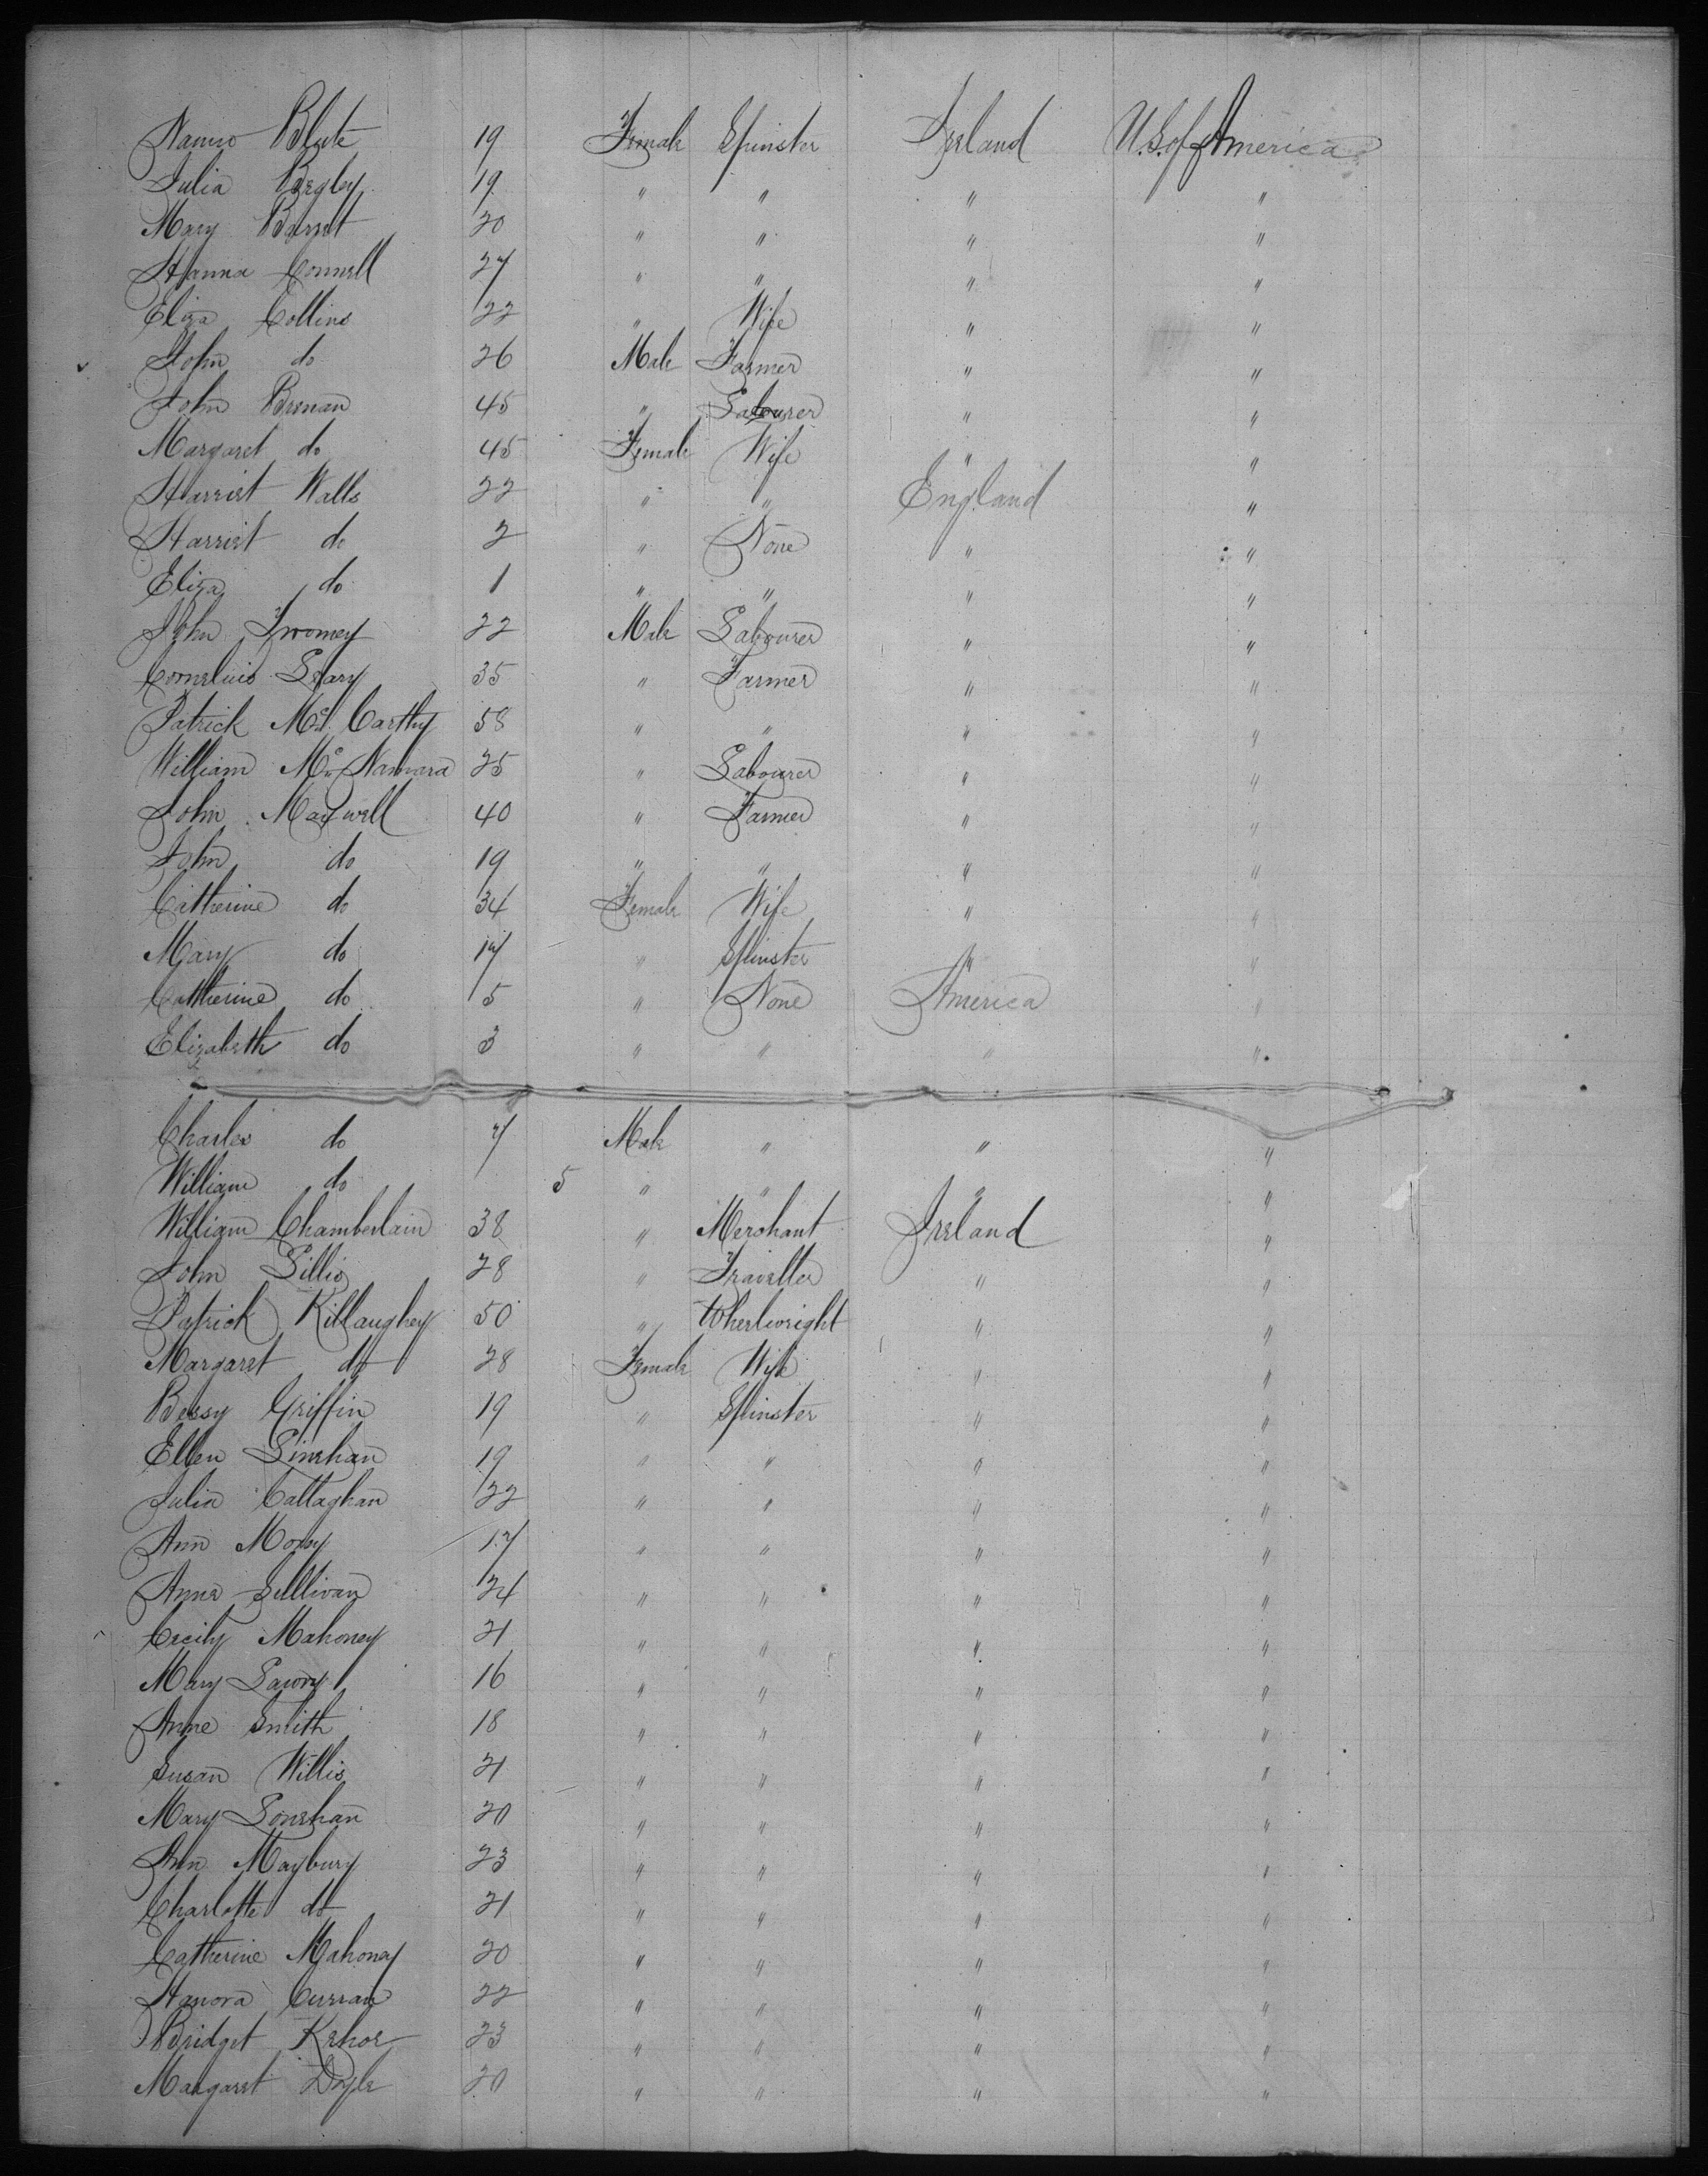 Blute 19 Female Spinster Ireland U.S. of America
Julia Begley 19 " " " "
Mary Barret 20 " " " "
Hanna Connell 27 " " " "
Eliza Collins 22 " Wife " "
John do 26 Male Farmer " "
John Brenan 45 " Labourer " "
Margaret do 45 Female Wife " "
Harriet Walls 22 " " England "
Harriet do 2 " None " "
Eliza do 1 " " " "
John Twomey 22 Male Labourer " "
Cornelius Leary 35 " Farmer " "
Patrick Mc Carthy 58 " " " "
William Mc Namara 25 " Labourer " "
John Maxwell 40 " Farmer " "
John do 19 " " " "
Catherine do 34 Female Wife " "
Mary do 17 " Spinster " "
Catherine do 5 " None America "
Elizabeth do 3 " " " "
Charles do 7 Male " " "
William do 5 " " " "
William Chamberlain 38 " Merchant Ireland "
John Lillis 28 " Traveller " "
Patrick Killaughey 50 " Wheelwright " "
Margaret do 28 Female Wife " "
Bessy Griffin 19 " Spinster " "
Ellen Linehan 19 " " " "
Julia Callaghan 22 " " " "
Ann 17 " " " "
Anne Sullivan 24 " " " "
Cecily Mahoney 21 " " " "
Mary 16 " " " "
Anne Smith 18 " " " "
Susan Willis 21 " " " "
Mary Lonehan 20 " " " "
Ann Maybury 23 " " " "
Charlotte do 21 " " " "
Catherine Mahoney 20 " " " "
Hanora Curran 22 " " " "
Bridget Kehoe 23 " " " "
Margaret Doyle 20 " " " "